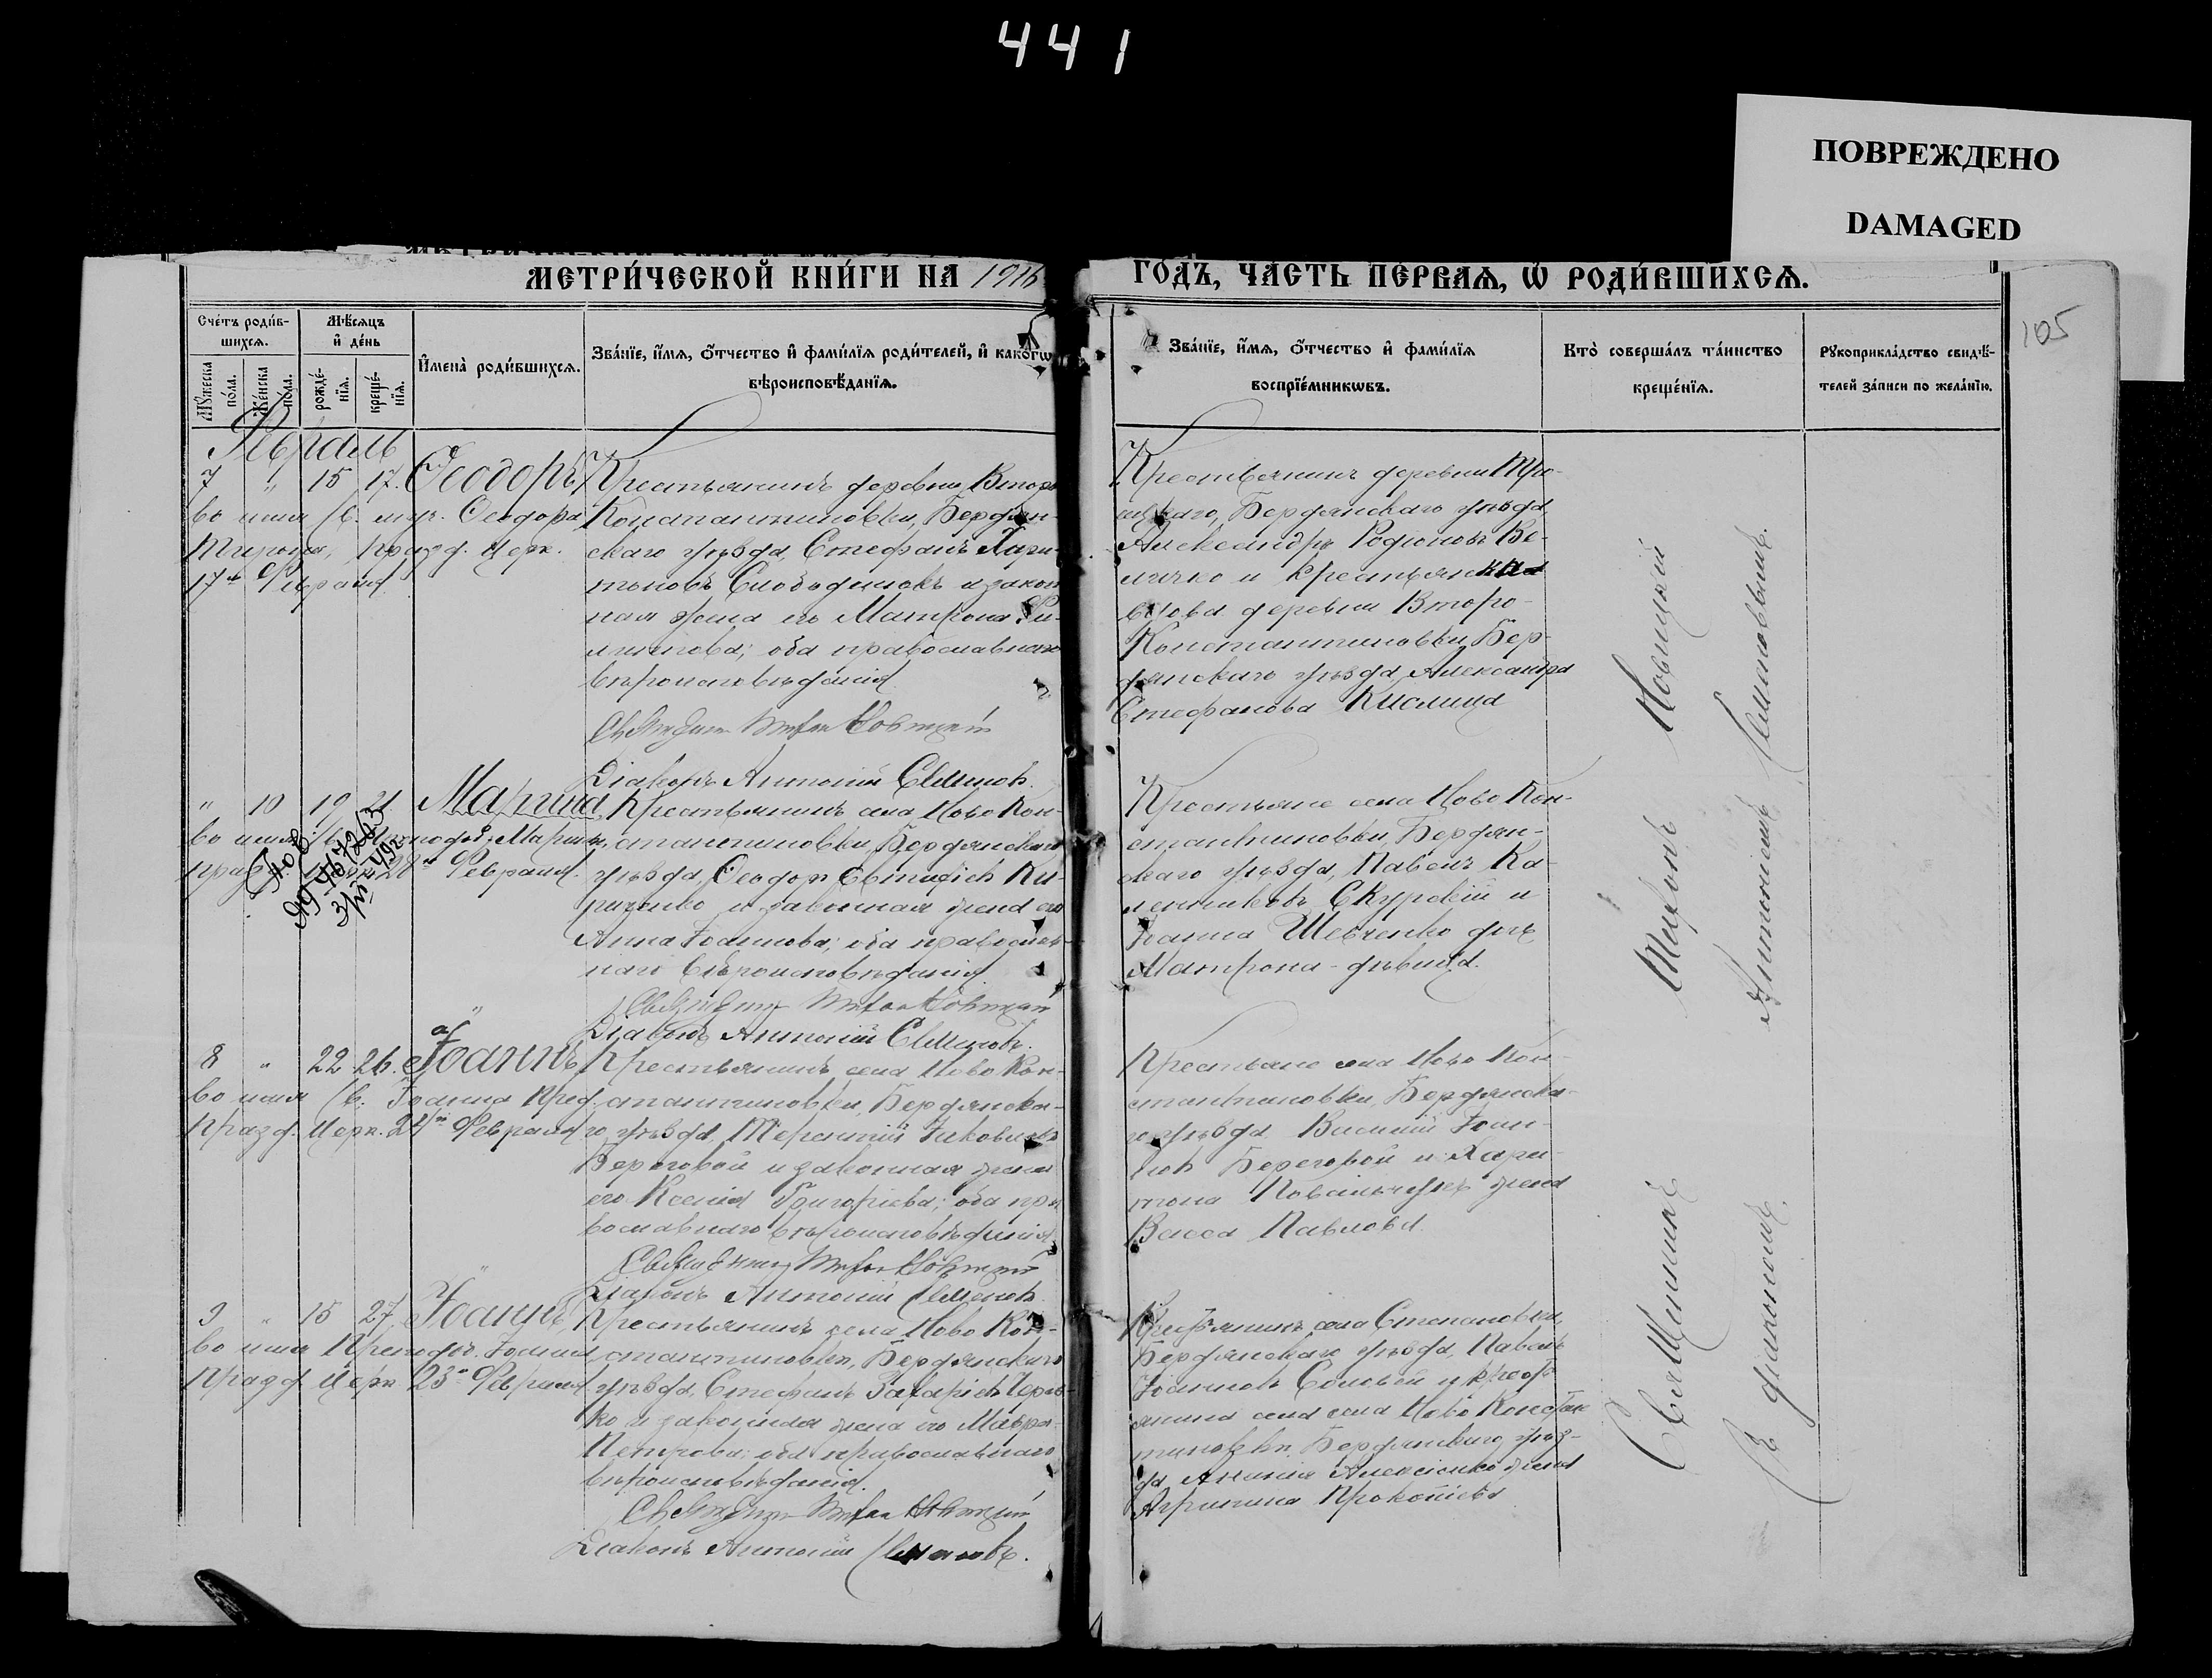 441
ПОВРЕЖДЕНО
DAMAGED
МЕТРИ́ЧЕСКОЙ КНИ́ГИ НА 1916
ГО́ДЪ, ЧА́СТЬ ПЕ́РВАЯ, Ѡ РОДИ́ВШИХСЯ.
105
Сче́тъ роди́в-
шихся.
Мѣ́сяцъ
и де́нь
Му́жеска
по́ла.
Же́нска
по́ла.
рожде́-
нїя.
креще́-
нїя.
И҆мена̀ роди́вшихся.
Зва́нїе, и҆́мя, ѻ҆́тчество и҆ фами́лїя роди́телей, и҆ како́гѡ
вѣроисповѣ́данїя.
Зва́нїе, и҆́мя, ѻ҆́тчество и҆ фами́лїя
воспрїе́мникѡвъ.
Кто̀ соверша́лъ та́инство
креще́нїя.
Рꙋкоприкла́дство свидѣ́-
телей за́писи по жела́нїю.
Февраль
7 " 15 17. Ѳеодоръ
во имя св. муч. Ѳеодора
Тирона, празд. церк.
17го Февраля
Крестьянинъ деревни Второ
Константиновки, Бердян-
скаго уѣзда, Стефанъ Хари-
тоновъ Слободянюкъ и закон
ная жена его Матрона Фи-
липпова; оба православнаго
вѣроисповѣданія
Священникъ Тихонъ Новицкій
Діаконъ Антоній Семеновъ.
Крестьянинъ деревни Тро-
ицкаго, Бердянскаго уѣзда
Александръ Родіоновъ Ве-
личко и крестьянская
вдова деревни Второ-
Константиновки, Бер-
дянскаго уѣзда, Александра
Стефанова Кислица
" 10 19 21 Марина
во имя св. преподоб. Марины
празд. 28го Февраля.
Крестьянинъ села Ново Кон-
стантиновки, Бердянскаго
уѣзда, Ѳеодоръ Евтихіевъ Ки-
риченко и законная жена его
Анна Іоаннова; оба православ-
наго вѣроисповѣданія
Священникъ Тихонъ Новицкій
Діаконъ Антоній Семеновъ.
Крестьяне села Ново Кон-
стантиновки, Бердян-
скаго уѣзда, Павелъ Ка-
ленниковъ Скурскій и
Іоанна Шевченко дочь
Матрона - дѣвица.
8 " 22 26. Іоаннъ
во имя св. Іоанна Пред.
празд. церк. 24го Февраля
Крестьянинъ села Ново Кон-
стантиновки, Бердянска-
го уѣзда, Терентій Іаковлевъ
Береговой и законная жена
его Ксенія Григоріева; оба пра
вославнаго вѣроисповѣданія
Священникъ Тихонъ Новицкій
Діаконъ Антоній Семеновъ
Крестьяне села Ново Кон-
стантиновки, Бердянска-
го уѣзда Василій Іоан-
новъ Береговой и Хари-
тона жена
Васса Павлова.
9 " 15 27. Іоаннъ
во имя Преподоб. Іоанна
празд. церк 23го Февраля
Крестьянинъ села Ново Кон-
стантиновки, Бердянскаго
уѣзда, Стефанъ Захаріевъ
ко и законная жена его Мавра
Петрова; оба православнаго
вѣроисповѣданія.
Священникъ Тихонъ Новицкій
Діаконъ Антоній Семеновъ.
Крестьянинъ села Степановки,
Бердянскаго уѣзда, Павелъ
Іоанновъ Соловей и крест
янина села села Ново Констан
тиновки Бердянскаго уѣз-
да Ананія Алексіенко жена
Агрипина Прокопіева
Священникъ Тихонъ Новицкій
Съ діакономъ Антоніемъ Семеновымъ.